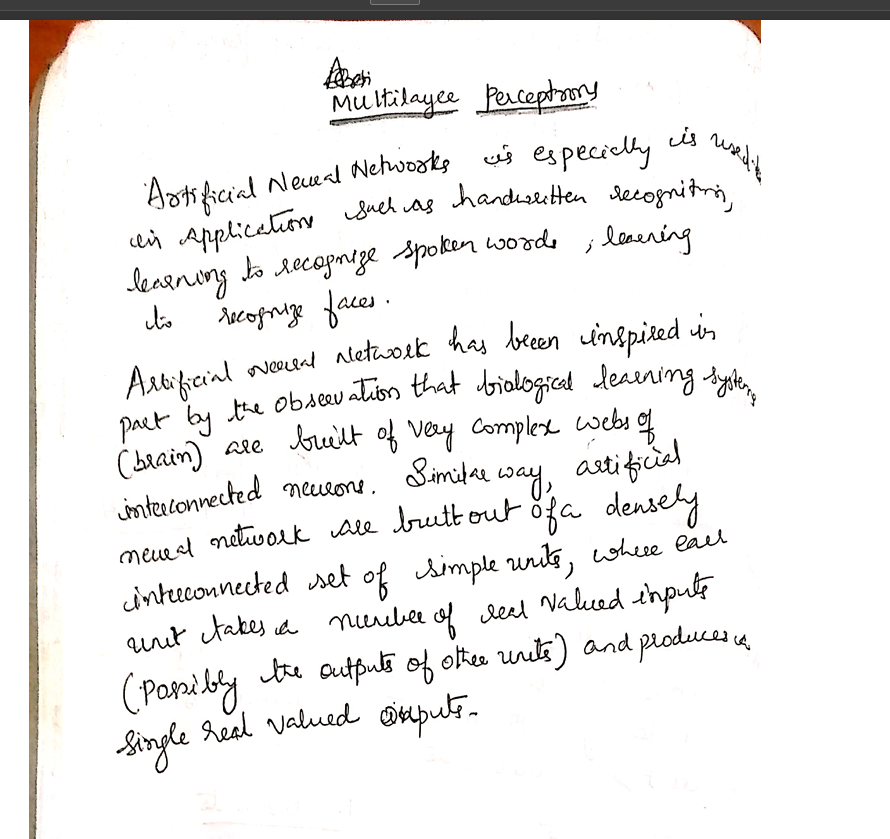 Multilayer Perceptrons
Artificial Neural Networks is especially is used
in Application such as handwritten recognition,
learning to recognize spoken words, learning
to recognize faces.
Artificial neural Network has been inspired in
part by the observation that biological learning systems
(brain) are built of very complex webs of
interconnected neurons. Similar way, artificial
neural network are built out of a densely
interconnected set of simple units, where each
unit takes a number of real valued inputs
(possibly the outputs of other units) and produces a
single real valued outputs.